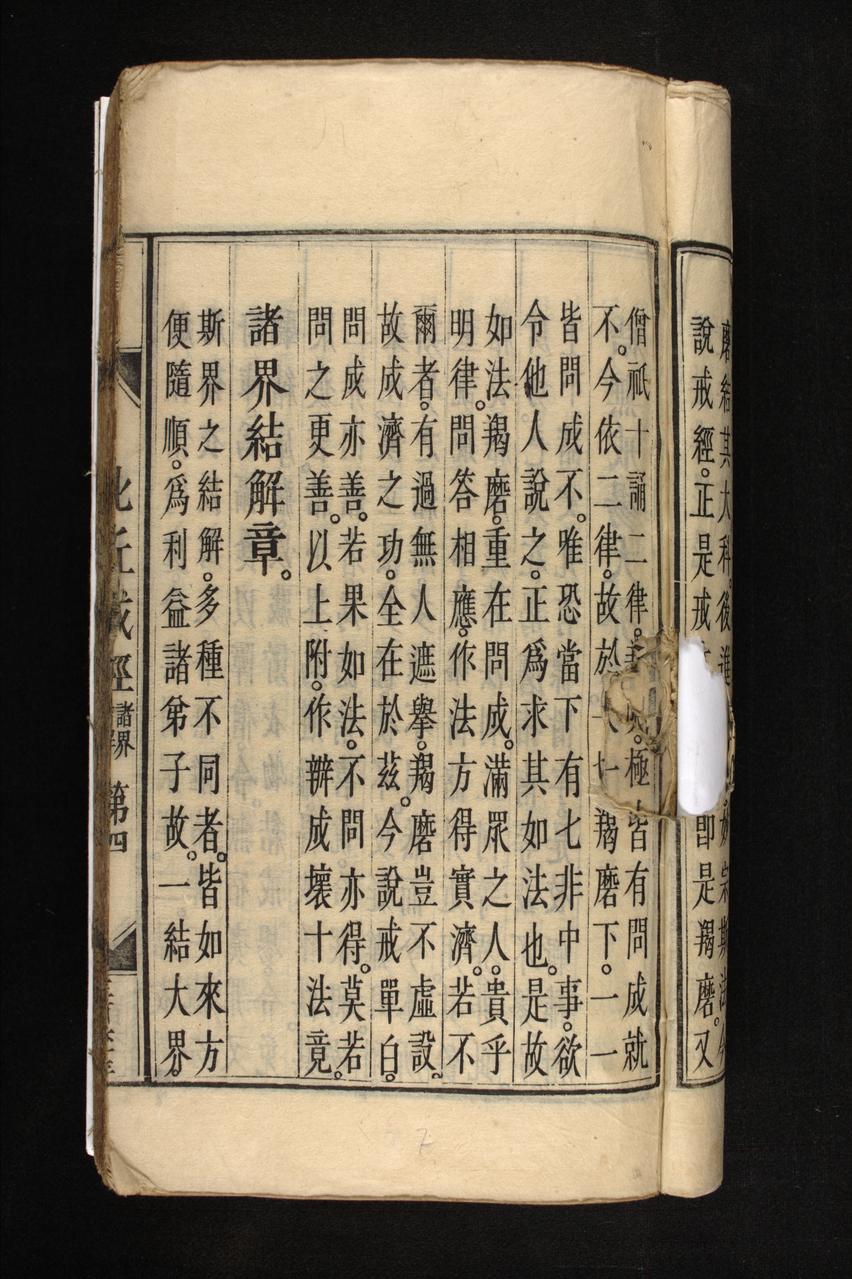 磨結其大科。後進
說戒經。正是戒
即是羯磨。又
僧祇十誦二律。極皆有問成就
不。今依二律。故於羯磨下。一一
皆問成不。唯恐當下有七非中事。欲
令他人說之。正爲求其如法也。是故
如法羯磨。重在問成。滿眾之人。貴乎
明律。問答相應。作法方得實濟。若不
爾者。有過無人遮舉。羯磨豈不虛設。
故成濟之功。全在於茲。今說戒單白。
問成亦善。若果如法。不問亦得。莫若
問之更善。以上附。作辦成壞十法竟。
諸界結解章。
斯界之結解。多種不同者。皆如來方
便隨順。爲利益諸弟子故。一結大界。
諸界
第四